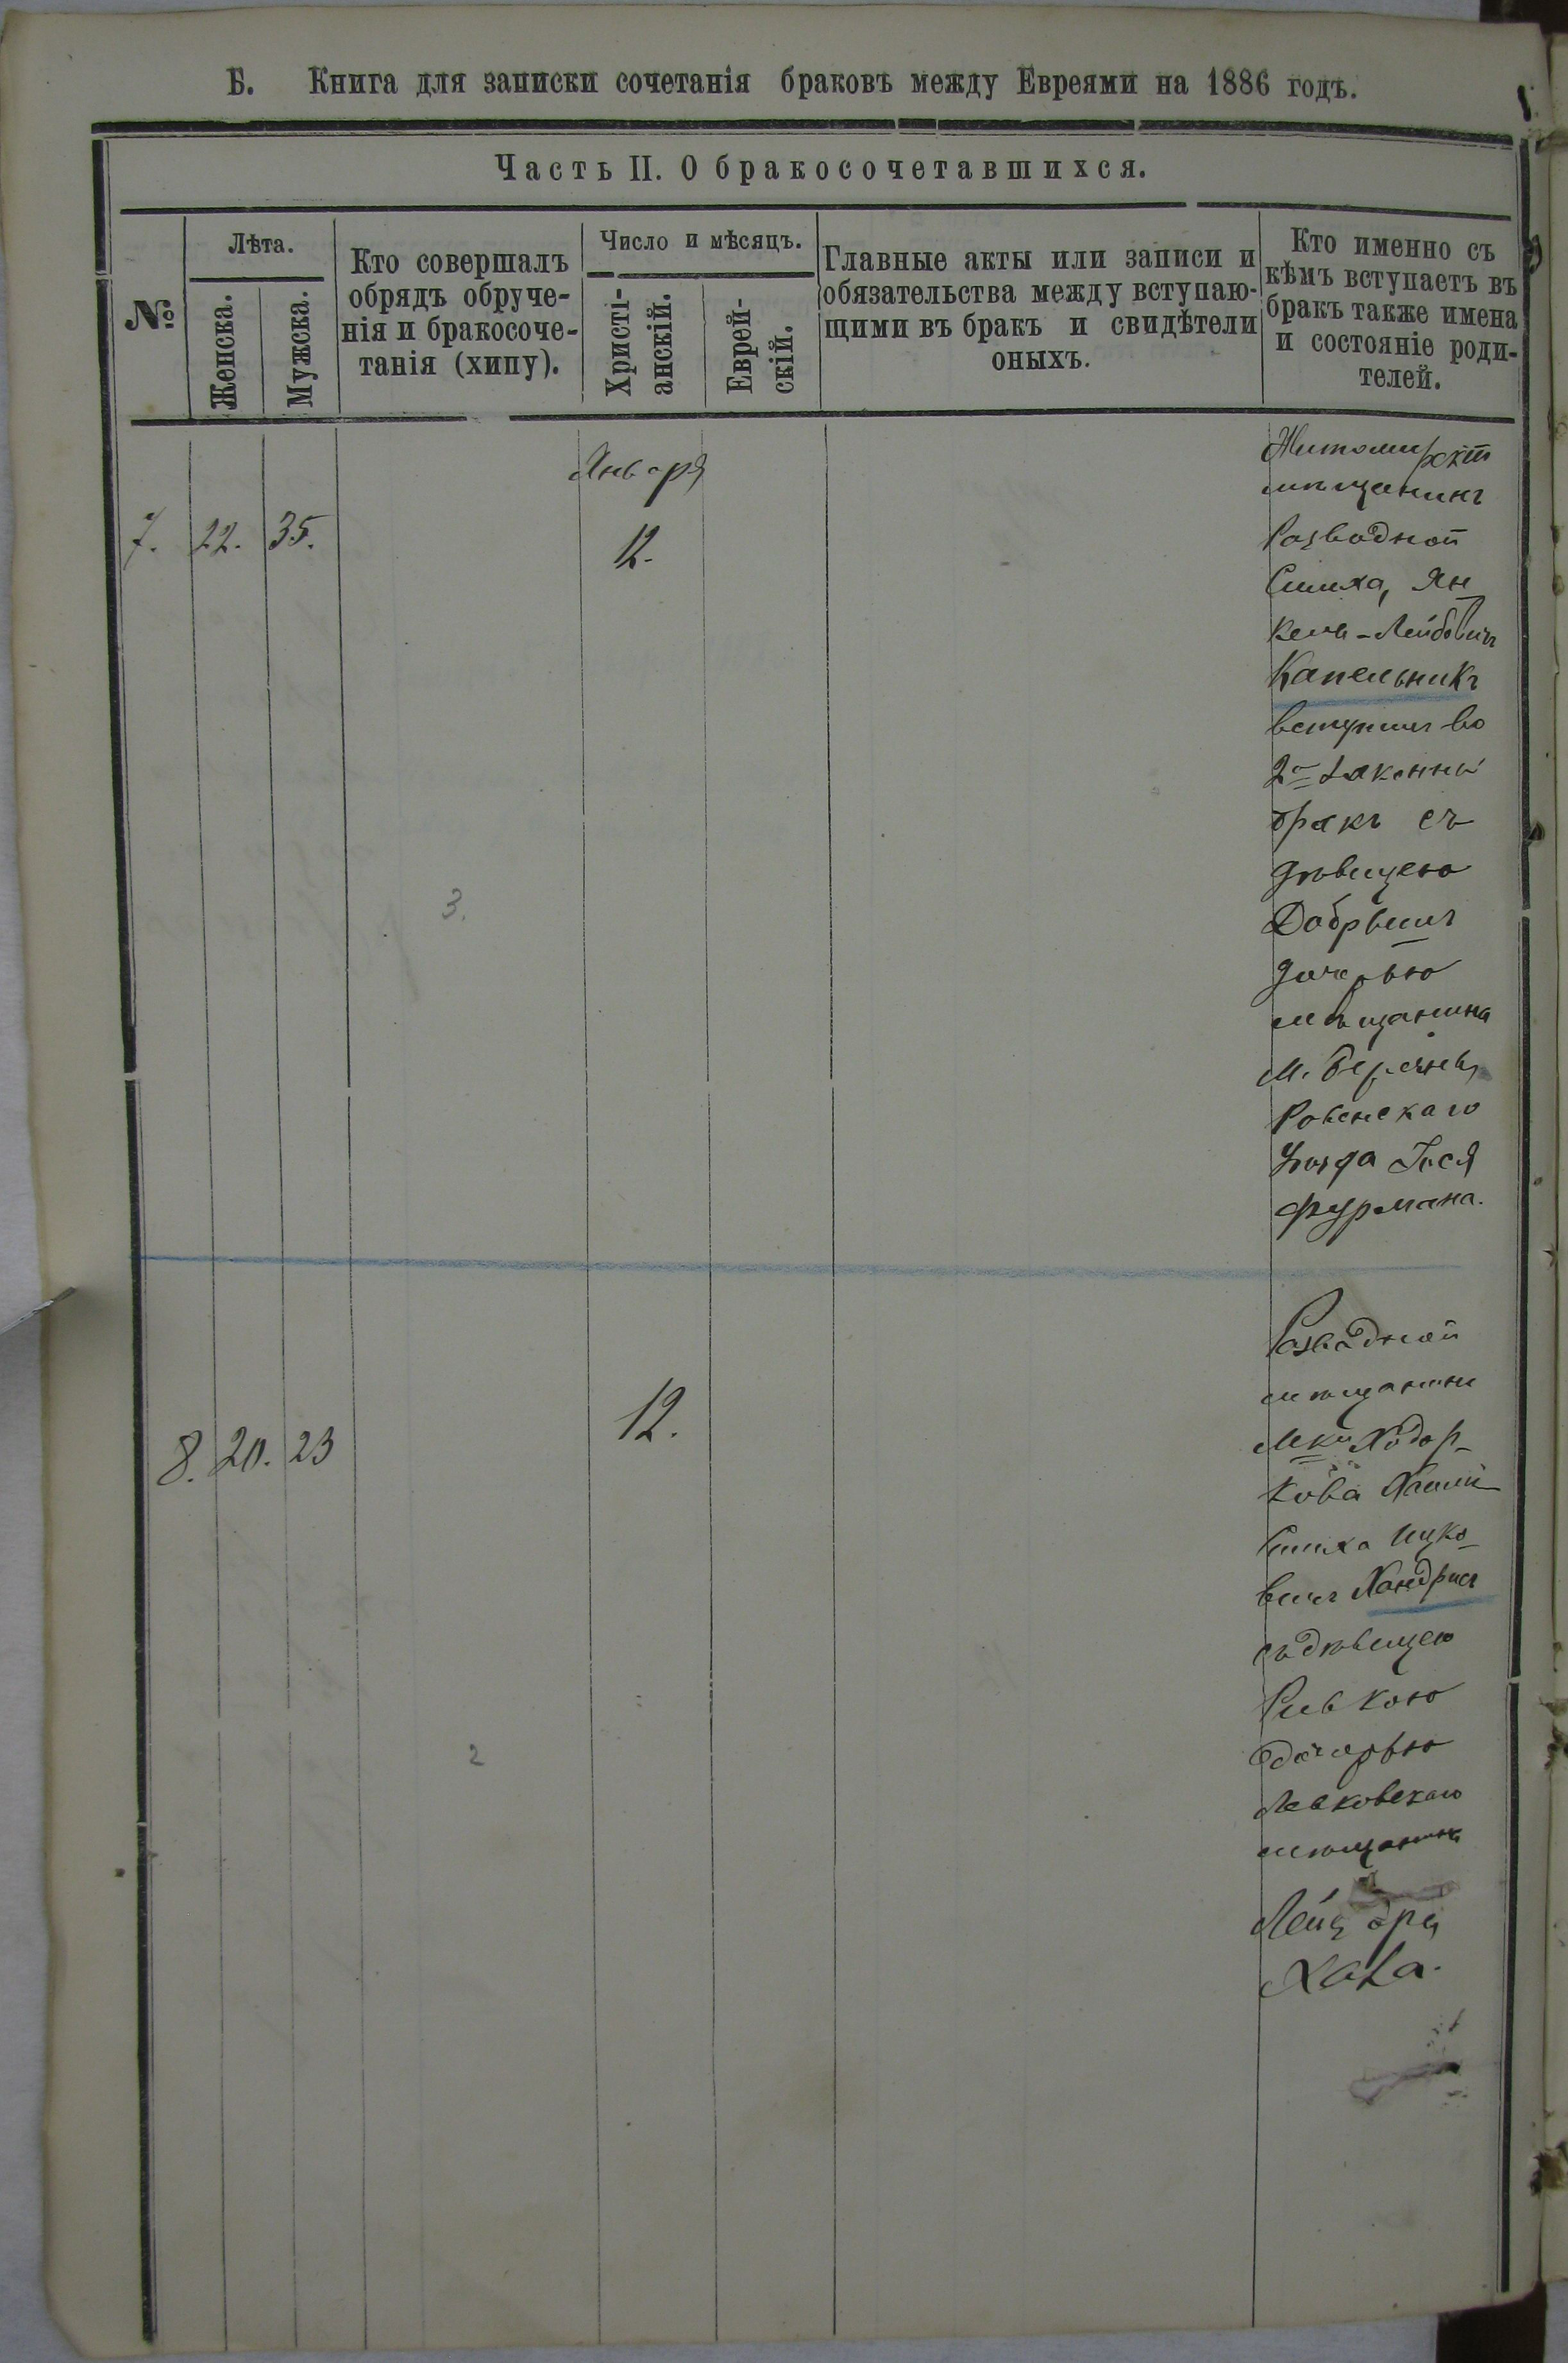 Б. Книга для записки сочетанія браковъ между Евреями на 1886 годъ.
Часть II. О бракосочетавшихся.
№
Лѣта.
Женска.
Мужска.
Кто совершалъ
обрядъ обруче-
нія и бракосоче-
танія (хипу).
Число и мѣсяцъ.
Христі-
анскій.
Еврей-
скій.
Главные акты или записи и
обязательства между вступаю-
щими въ бракъ и свидѣтели
оныхъ.
Кто именно съ
кѣмъ вступаетъ въ
бракъ также имена
и состояніе роди-
телей.
Января
7. 22. 35. 12.
3.
Житомирскій
мѣщанинъ
Разводной
Симха, Ян
кель-Лейбовичъ
Капельникъ
вступилъ во
2й законный
бракъ съ
дѣвицею
дочерью
мѣщанина
М.
Ровенскаго
уѣзда Іося
Фурмана.
8. 20. 23 12.
2
Разводной
мѣщанин
Мка Ходор-
кова Хаим
Симха Ицко-
вичъ
съ дѣвицею
Ривкою
дочерью
мѣщанина